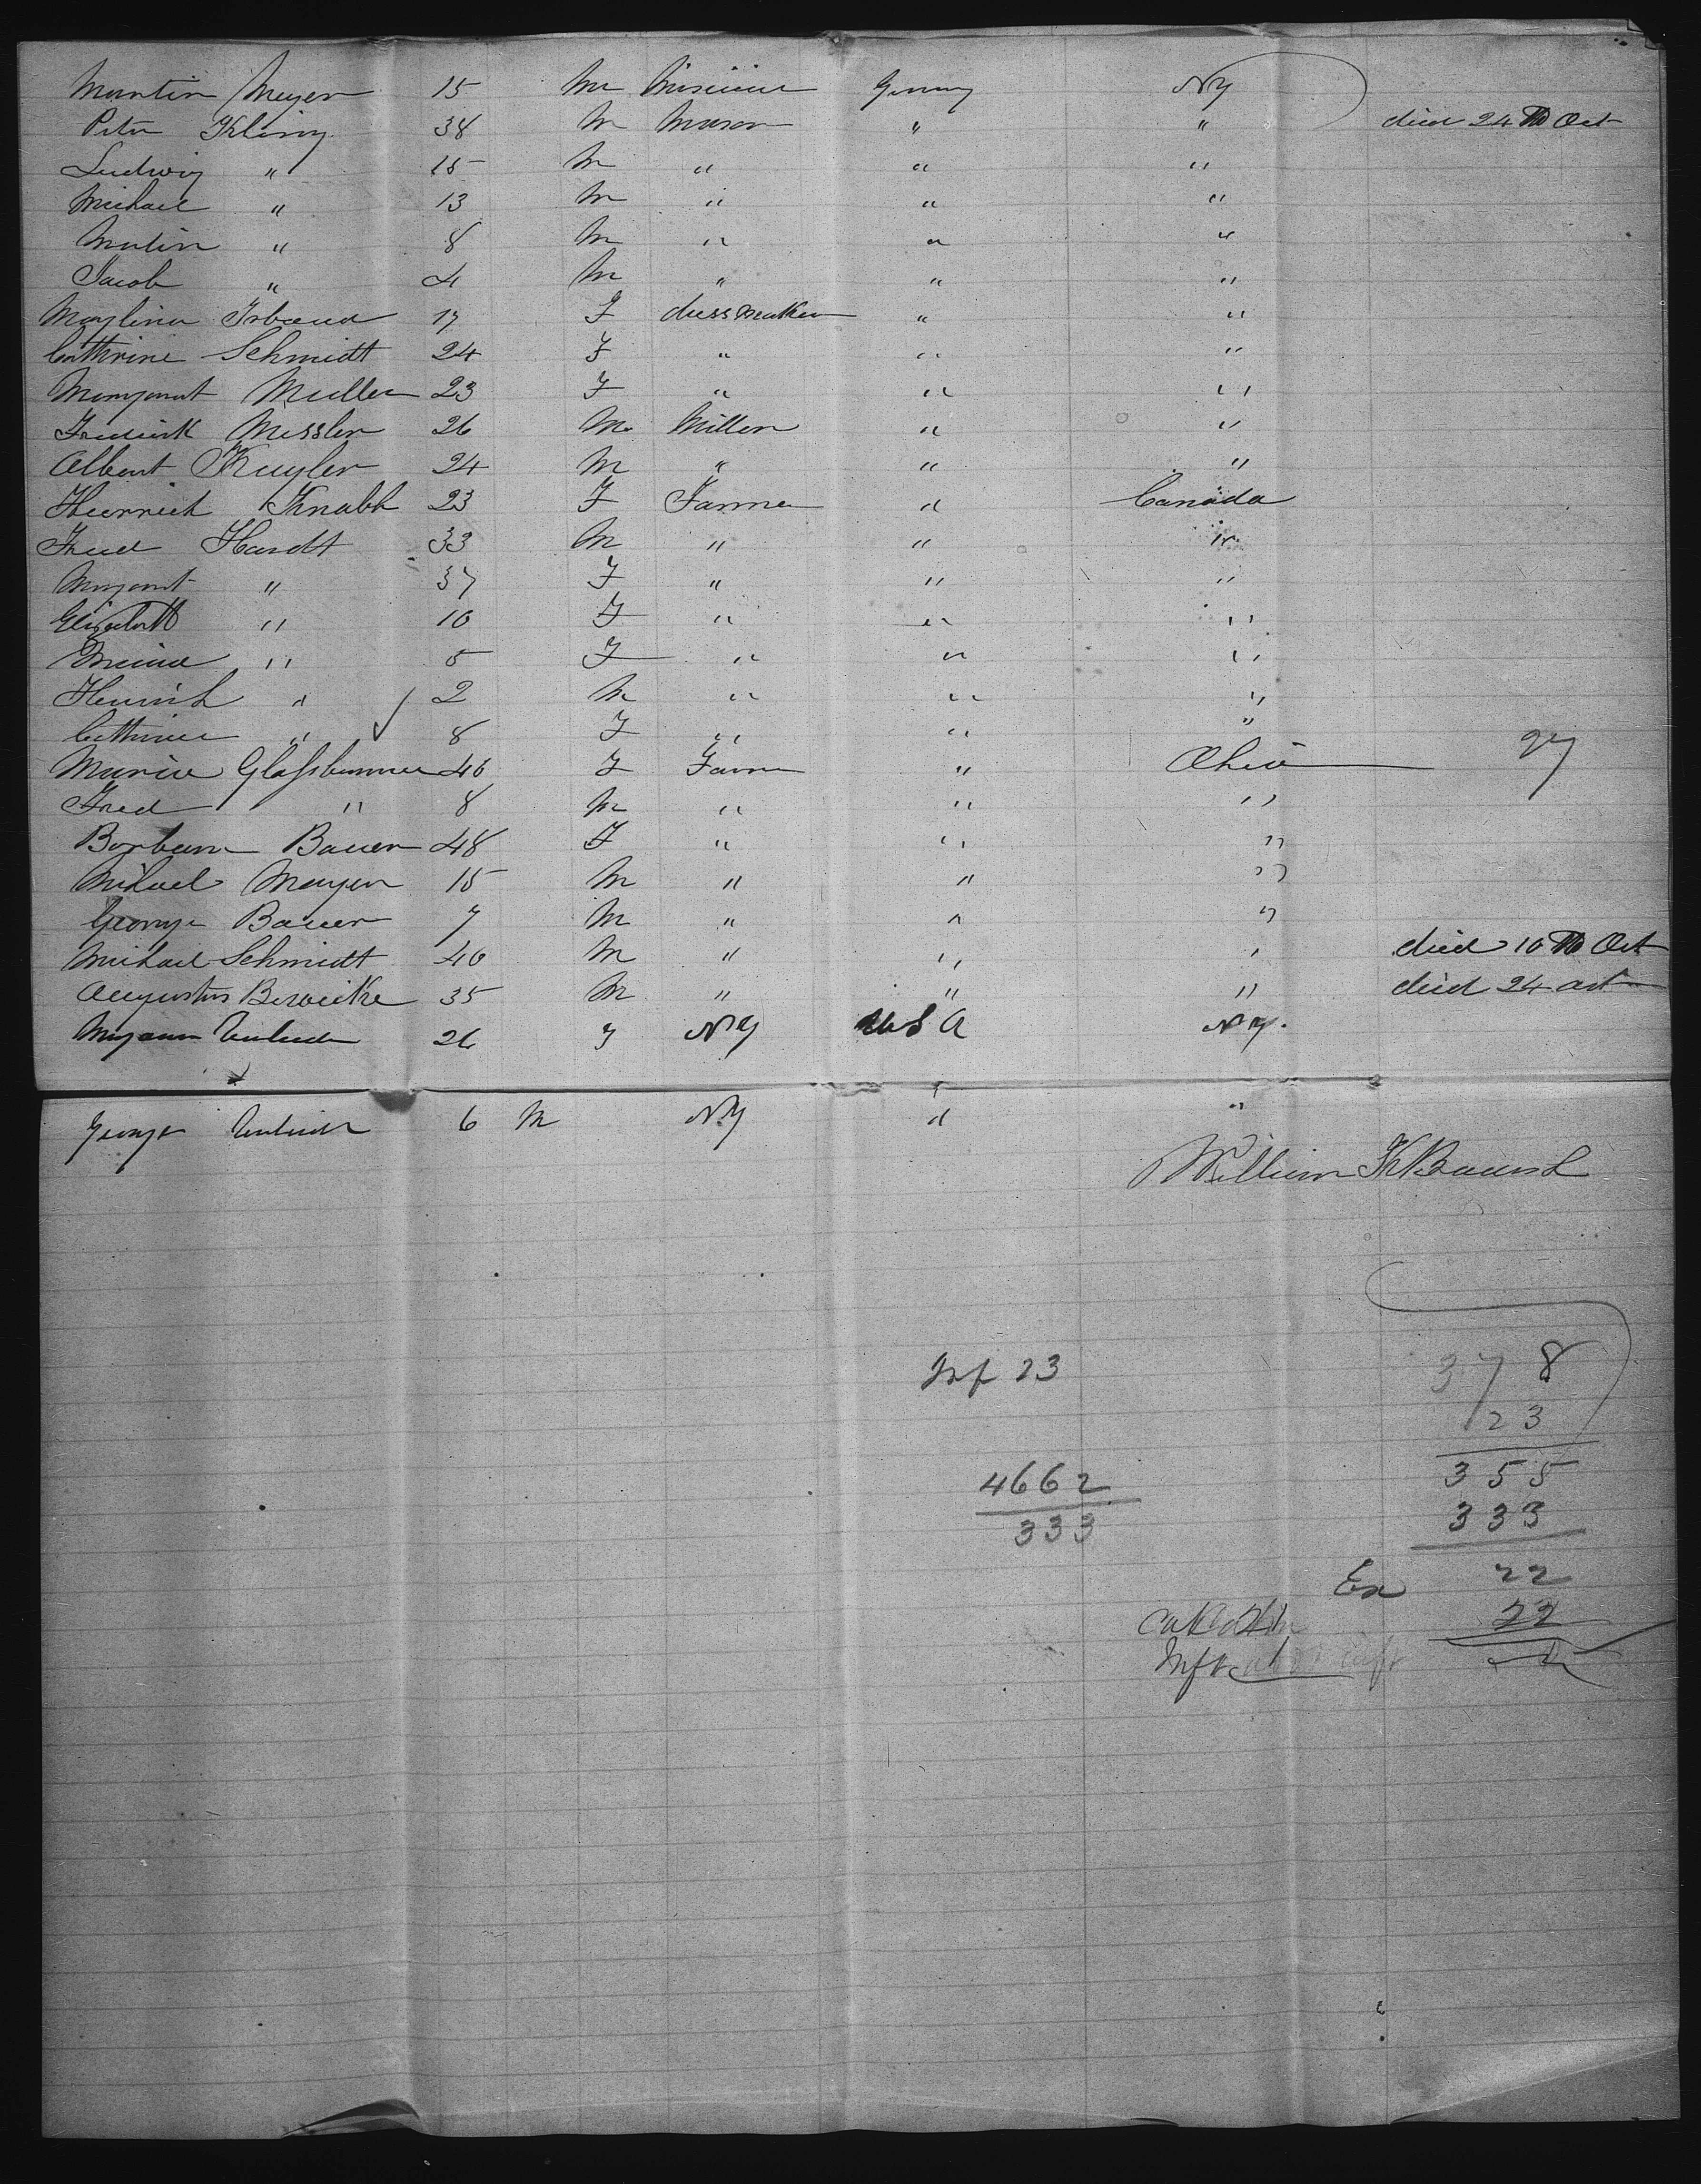 Martin Meyer 15 M Musician Germany NY
Peter Kling 38 M Mason " " died 24th Oct
Ludwig " 15 M " " "
Michael " 13 M " " "
Martin " 8 M " " "
Jacob " 4 M " " "
17 F dressmaker " "
Cathrine Schmidt 24 F " " "
Margaret Muller 23 F " " "
Frederick Messler 26 M Miller " "
Albert Kuyler 24 M " " "
Heinrich Knabh 23 F Farmer " Canada
Fred Hardt 33 M " " "
Margaret " 37 F " " "
Elizabeth " 10 F " " "
" 5 F " " "
Heinrich " 2 M " " "
Cathrine " 8 F " " "
Maria Glassbrenner 46 F Farm " Ohio 27
Fred " 8 M " " "
Barbara Bauer 48 F " " "
Michael Meyer 15 M " " "
George Bauer 7 M " " "
Michael Schmidt 40 M " " " died 10th Oct
Augustus 35 M " " " died 24 Oct
26 F NY USA NY.
George 6 M NY " "
William
378
Inf 23 23
355
4662 333
333
Ex 22
22